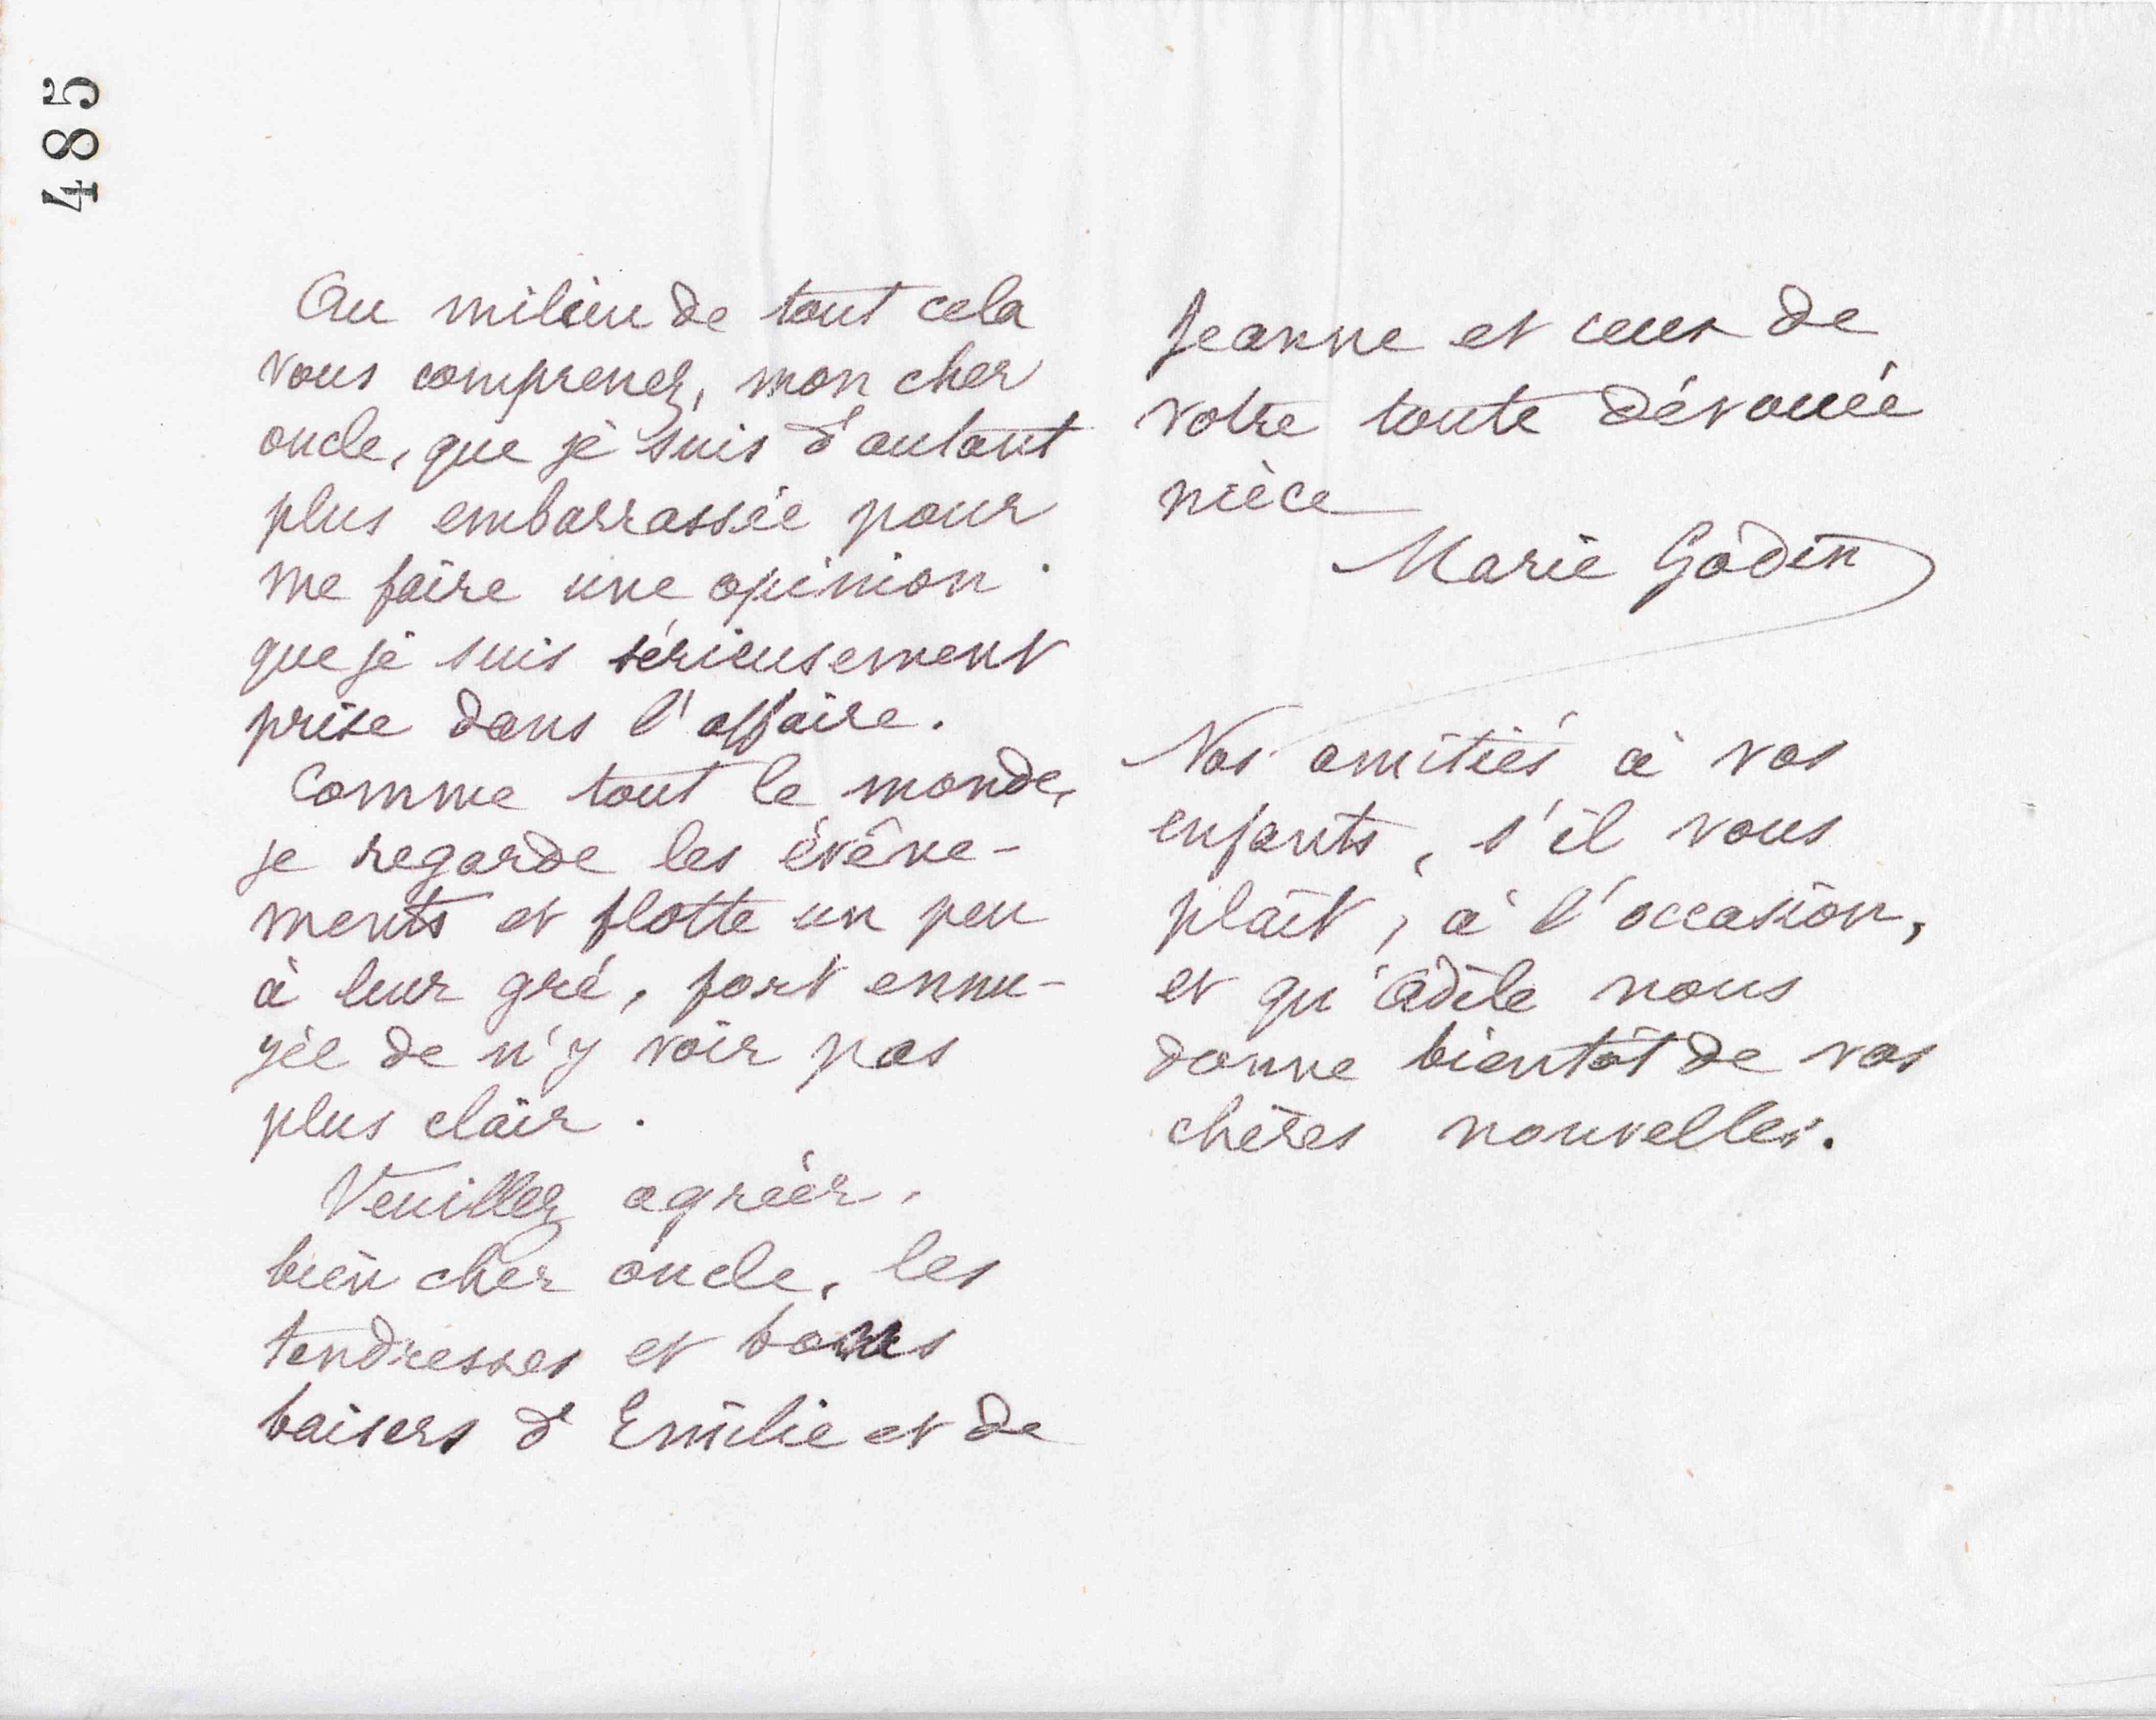 485
Au milieu de tout cela
vous comprenez, mon cher
oncle, que je suis d'autant
plus embarrassée pour
me faire une opinion
que je suis sérieusement
prise dans l'affaire.
Comme tout le monde,
je regarde les évène-
ments et flotte un peu
à leur gré, fort ennu-
yée de n'y voir pas
plus clair.
Veuillez agréer,
bien cher oncle, les
tendresses et bons
baisers d'Emilie et de
Jeanne et ceux de
votre toute dévouée
nièce
Marie Godin
Nos amitiés à vos
enfants, s'il vous
plaît, à l'occasion,
et qu'Adèle nous
donne bientôt de vos
chères nouvelles.